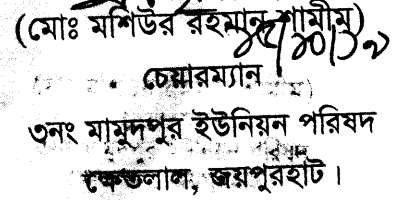 (মোঃ মশিউর রহমান শামীম)
চেয়ারম্যান
৩নং মামুদপুর ইউনিয়ন পরিষদ
ক্ষেতলাল, জয়পুরহাট।